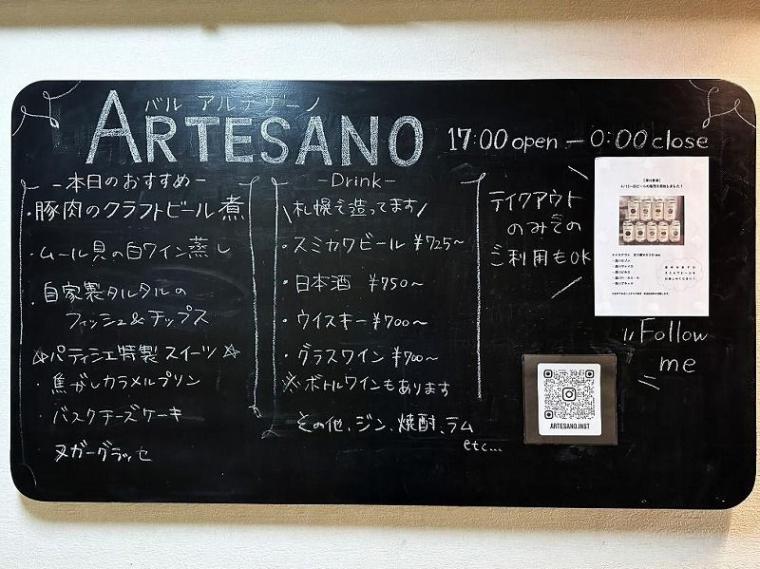 バル アルテザーノ
ARTESANO
17:00 open — 0:00 close
-本日のおすすめ-
・豚肉のクラフトビール煮
・ムール貝の白ワイン蒸し
・自家製タルタルの
フィッシュ&チップス
☆パティシエ特製スイーツ☆
・焦がしカラメルプリン
・バスクチーズケーキ
・ヌガーグラッセ
-Drink-
\札幌で造ってます/
・スミカワビール ¥725~
・日本酒 ¥750~
・ウイスキー ¥700~
・グラスワイン ¥700~
※ボトルワインもあります
その他、ジン、焼酎、ラム
etc...
テイクアウト
のみでの
ご利用もOK
Follow
me
ARTESANO.INST